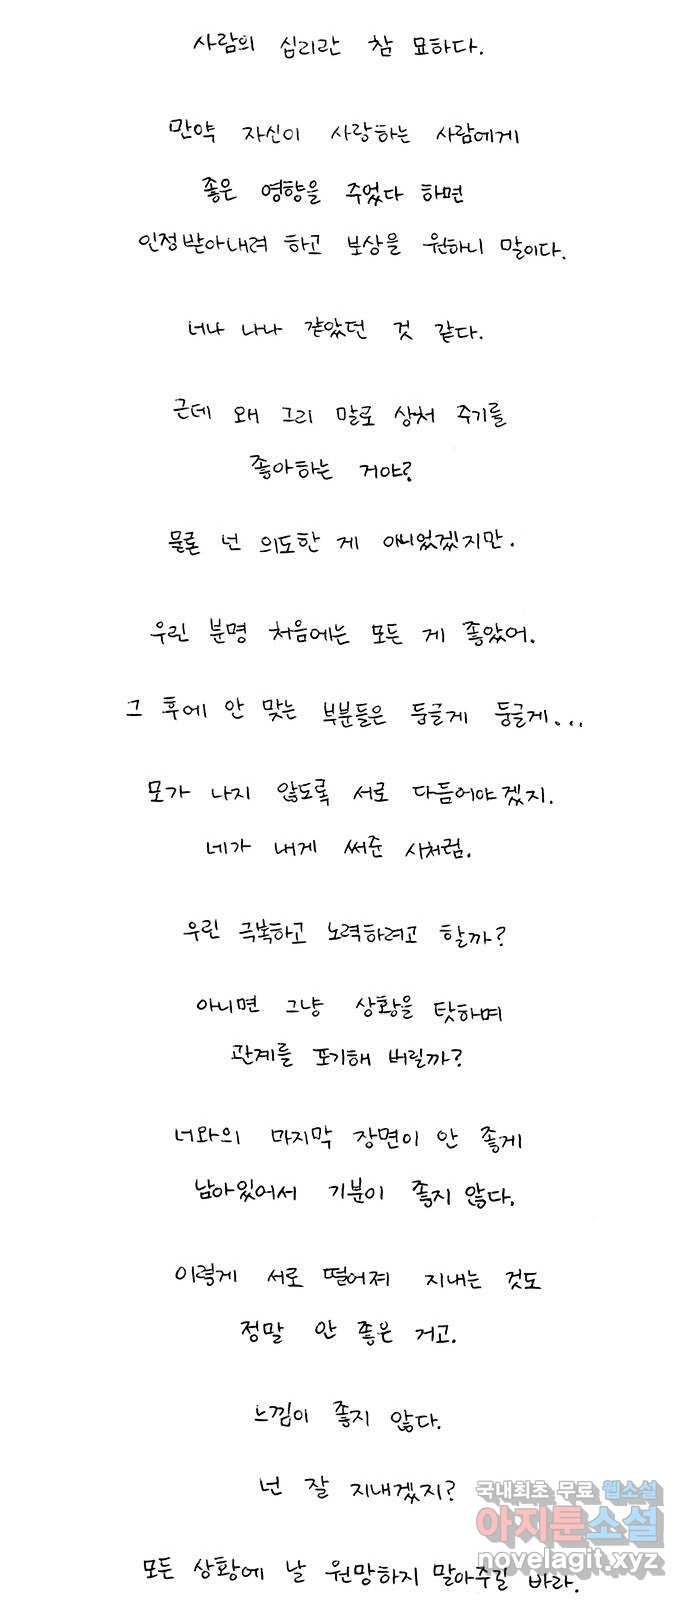 사람의 심리란 참 묘하다.
만약 자신이 사랑하는 사람에게
좋은 영향을 주었다 하면
인정받아내려 하고 보상을 원하니 말이다.
너나 나나 같았던 것 같다.
근데 왜 그리 말로 상처 주기를
좋아하는 거야?
물론 넌 의도한 게 아니었겠지만.
우린 분명 처음에는 모든 게 좋았어.
그 후에 안 맞는 부분들은 둥글게 둥글게...
모가 나지 않도록 서로 다듬어야겠지.
네가 내게 써준 시처럼.
우린 극복하고 노력하려고 할까?
아니면 그냥 상황을 탓하며
관계를 포기해 버릴까?
너와의 마지막 장면이 안 좋게
남아있어서 기분이 좋지 않다.
이렇게 서로 떨어져 지내는 것도
정말 안 좋은 거고.
느낌이 좋지 않다.
넌 잘 지내겠지?
모든 상황에 날 원망하지 말아주길 바라.
국내최초 무료 웹소설
아지툰소설
novelagit.xyz